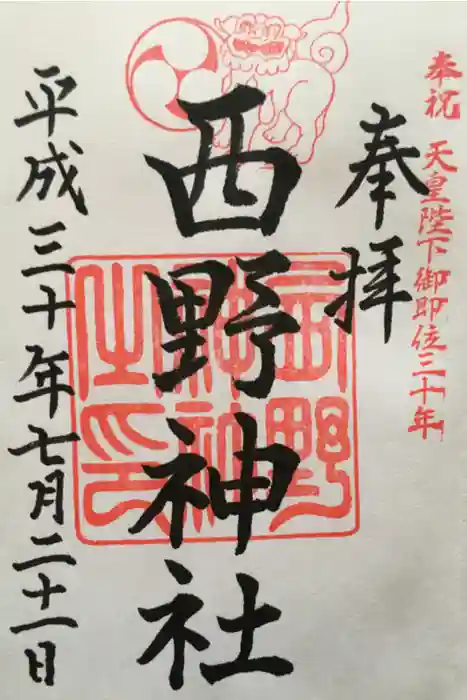 奉祝 天皇陛下御即位三十年
奉拝
西野神社
平成三十年七月二十一日
西野神社之印